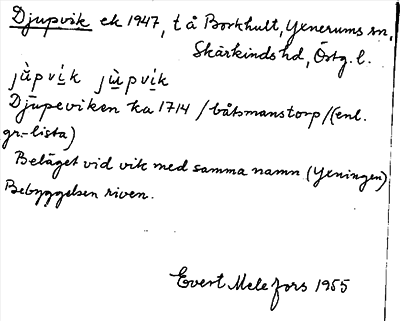 Djupvik ek 1947, t å Borkhult, Yxnerums sn,
Skärkinds hd, Östg. l.
jùpvík jùpvík
Djupeviken ka 1714 /båtsmanstorp/(enl.
gr.-lista)
Beläget vid vik med samma namn (Yxningen)
Bebyggelsen riven.
Evert Melefors 1955